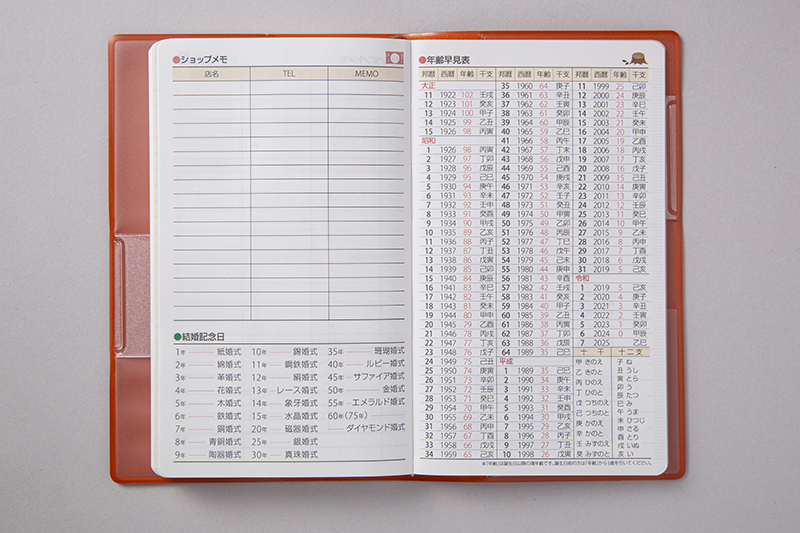 ●ショップメモ
店名 TEL MEMO
●結婚記念日
1年 紙婚式
2年 綿婚式
3年 革婚式
4年 花婚式
5年 木婚式
6年 鉄婚式
7年 銅婚式
8年 青銅婚式
9年 陶器婚式
10年 錫婚式
11年 鋼鉄婚式
12年 絹婚式
13年 レース婚式
14年 象牙婚式
15年 水晶婚式
20年 磁器婚式
25年 銀婚式
30年 真珠婚式
35年 珊瑚婚式
40年 ルビー婚式
45年 サファイア婚式
50年 金婚式
55年 エメラルド婚式
60年(75年)
ダイヤモンド婚式
●年齢早見表
邦暦 西暦 年齢 干支
大正
11 1922 102 壬戌
12 1923 101 癸亥
13 1924 100 甲子
14 1925 99 乙丑
15 1926 98 丙寅
昭和
1 1926 98 丙寅
2 1927 97 丁卯
3 1928 96 戊辰
4 1929 95 己巳
5 1930 94 庚午
6 1931 93 辛未
7 1932 92 壬申
8 1933 91 癸酉
9 1934 90 甲戌
10 1935 89 乙亥
11 1936 88 丙子
12 1937 87 丁丑
13 1938 86 戊寅
14 1939 85 己卯
15 1940 84 庚辰
16 1941 83 辛巳
17 1942 82 壬午
18 1943 81 癸未
19 1944 80 甲申
20 1945 79 乙酉
21 1946 78 丙戌
22 1947 77 丁亥
23 1948 76 戊子
24 1949 75 己丑
25 1950 74 庚寅
26 1951 73 辛卯
27 1952 72 壬辰
28 1953 71 癸巳
29 1954 70 甲午
30 1955 69 乙未
31 1956 68 丙申
32 1957 67 丁酉
33 1958 66 戊戌
34 1959 65 己亥
邦暦 西暦 年齢 干支
35 1960 64 庚子
36 1961 63 辛丑
37 1962 62 壬寅
38 1963 61 癸卯
39 1964 60 甲辰
40 1965 59 乙巳
41 1966 58 丙午
42 1967 57 丁未
43 1968 56 戊申
44 1969 55 己酉
45 1970 54 庚戌
46 1971 53 辛亥
47 1972 52 壬子
48 1973 51 癸丑
49 1974 50 甲寅
50 1975 49 乙卯
51 1976 48 丙辰
52 1977 47 丁巳
53 1978 46 戊午
54 1979 45 己未
55 1980 44 庚申
56 1981 43 辛酉
57 1982 42 壬戌
58 1983 41 癸亥
59 1984 40 甲子
60 1985 39 乙丑
61 1986 38 丙寅
62 1987 37 丁卯
63 1988 36 戊辰
64 1989 35 己巳
平成
1 1989 35 己巳
2 1990 34 庚午
3 1991 33 辛未
4 1992 32 壬申
5 1993 31 癸酉
6 1994 30 甲戌
7 1995 29 乙亥
8 1996 28 丙子
9 1997 27 丁丑
10 1998 26 戊寅
邦暦 西暦 年齢 干支
11 1999 25 己卯
12 2000 24 庚辰
13 2001 23 辛巳
14 2002 22 壬午
15 2003 21 癸未
16 2004 20 甲申
17 2005 19 乙酉
18 2006 18 丙戌
19 2007 17 丁亥
20 2008 16 戊子
21 2009 15 己丑
22 2010 14 庚寅
23 2011 13 辛卯
24 2012 12 壬辰
25 2013 11 癸巳
26 2014 10 甲午
27 2015 9 乙未
28 2016 8 丙申
29 2017 7 丁酉
30 2018 6 戊戌
31 2019 5 己亥
令和
1 2019 5 己亥
2 2020 4 庚子
3 2021 3 辛丑
4 2022 2 壬寅
5 2023 1 癸卯
6 2024 0 甲辰
7 2025 乙巳
十干
甲 きのえ
乙 きのと
丙 ひのえ
丁 ひのと
戊 つちのえ
己 つちのと
庚 かのえ
辛 かのと
壬 みずのえ
癸 みずのと
十二支
子 ね
丑 うし
寅 とら
卯 う
辰 たつ
巳 み
午 うま
未 ひつじ
申 さる
酉 とり
戌 いぬ
亥 い
※「年齢」は誕生日以降の満年齢です。誕生日前の方は「年齢」から1歳を引いてください。